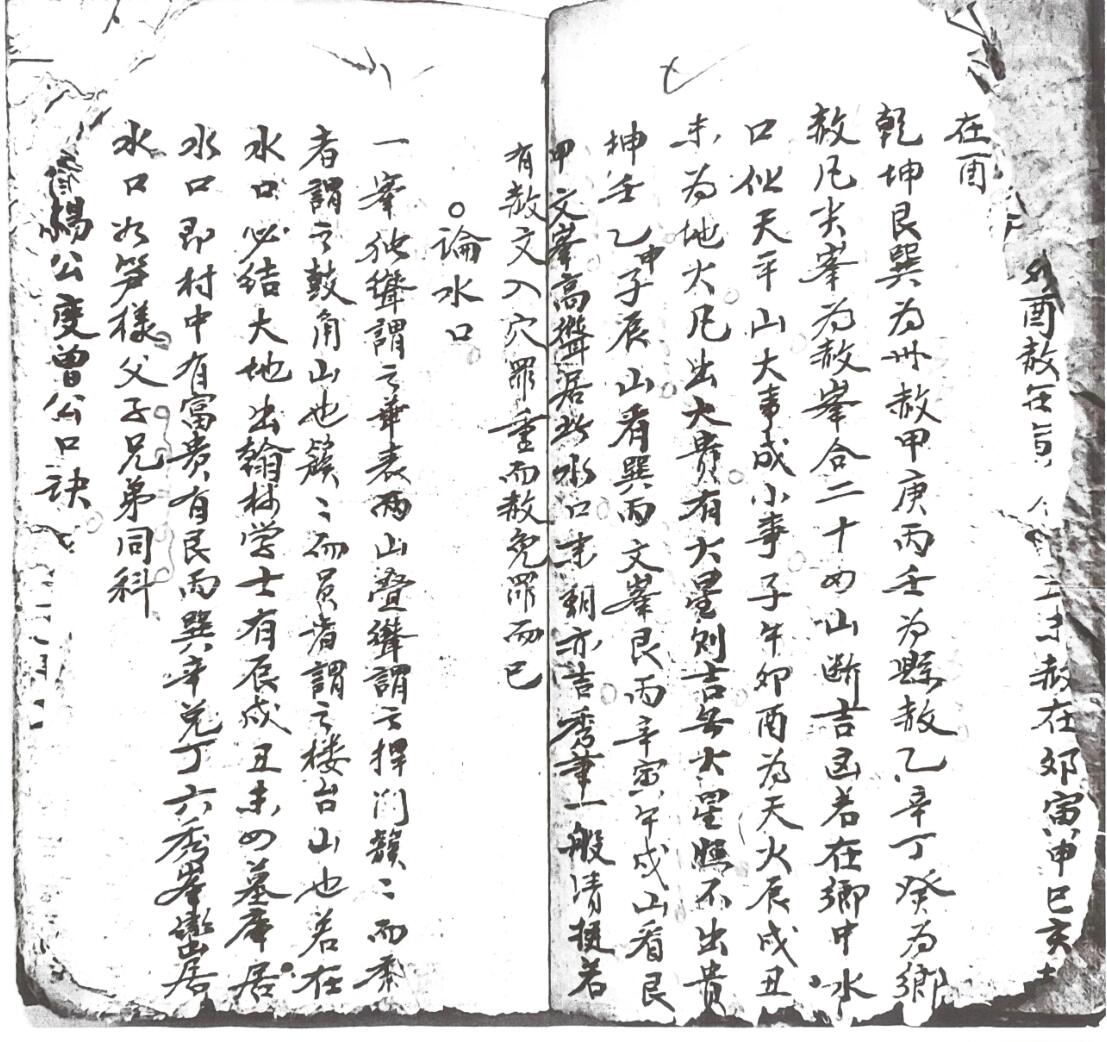 酉赦在寅赦在卯寅申巳亥
在酉
乾坤艮巽为州赦甲庚丙壬为縣赦乙辛丁癸为鄉
赦凡尖峯为赦峯合二十四山断吉凶若在鄉中水
口似天平山大事成小事子午卯酉为天火辰戌丑
未为地火凡出大貴有火星则吉無火星照不出貴
坤壬乙申子辰山看巽丙文峯艮丙辛寅午戌山看艮
甲文峯高聳居於水口来朝亦吉秀筆一般清挺若
有赦文入穴罪重而赦免罪而已
○論水口
一峯独聳謂之華表两山叠聳謂之捍门簇〻而
者謂之鼓角山也簇〻而員者謂之楼台山也若在
水口必结大地出翰林学士有辰戌丑未四墓庫居
水口即村中有富贵有艮丙巽辛兑丁六秀峯居
水口如笋樣父子兄弟同科
楊公度曾公口诀